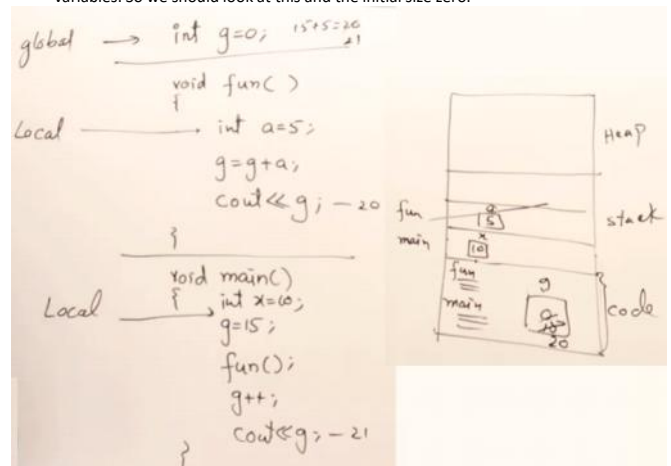 variables. So we should look at this and the initial size zero.
global → int g=0; 15+5=20
21
void fun( )
{
Local → int a=5;
g=g+a;
cout<<g; - 20
}
void main()
Local → { int x=10;
g=15;
fun();
g++;
cout<<g; - 21
}
Heap
fun a
5 stack
main x
10
fun
main g code
0
15
20